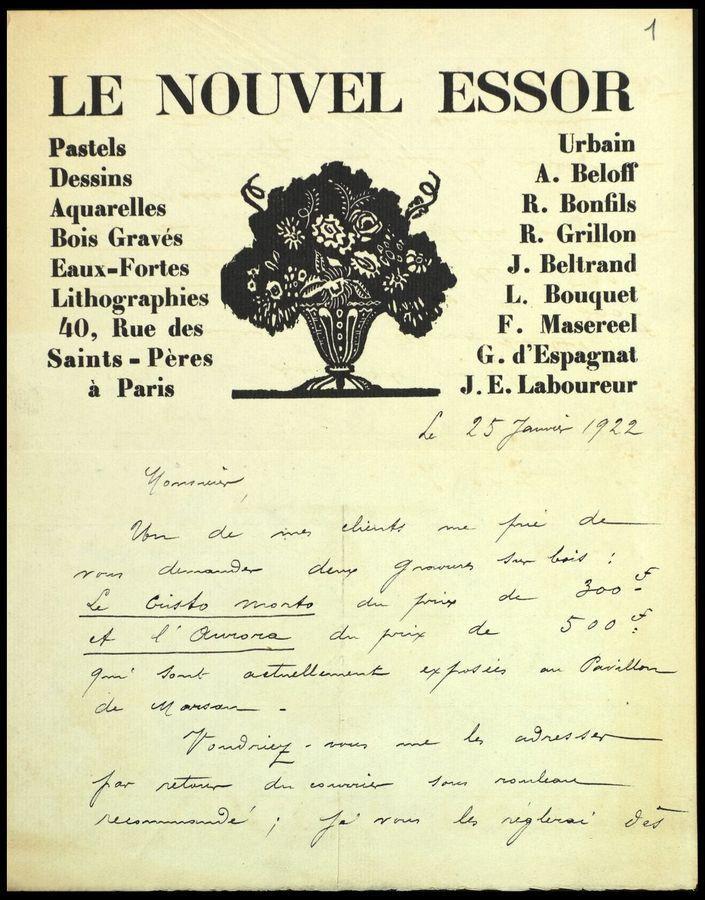 1
LE NOUVEL ESSOR
Pastels
Dessins
Aquarelles
Bois Gravés
Eaux-Fortes
Lithographies
40, Rue des
Saints-Pères
à Paris
Urbain
A. Beloff
R. Bonfils
R. Grillon
J. Beltrand
L. Bouquet
F. Masereel
G. d'Espagnat
J. E. Laboureur
Le 25 Janvier 1922
Monsieur,
Un de mes clients me prie de
vous demander deux gravures sur bois :
Le Cristo morto du prix de 300 f
et l'Aurora du prix de 500 f.
qui sont actuellement exposées au Pavillon
de Marsan -
Voudriez-vous me les adresser
par retour du courrier sous rouleau
recommandé ; je vous les réglerai dès